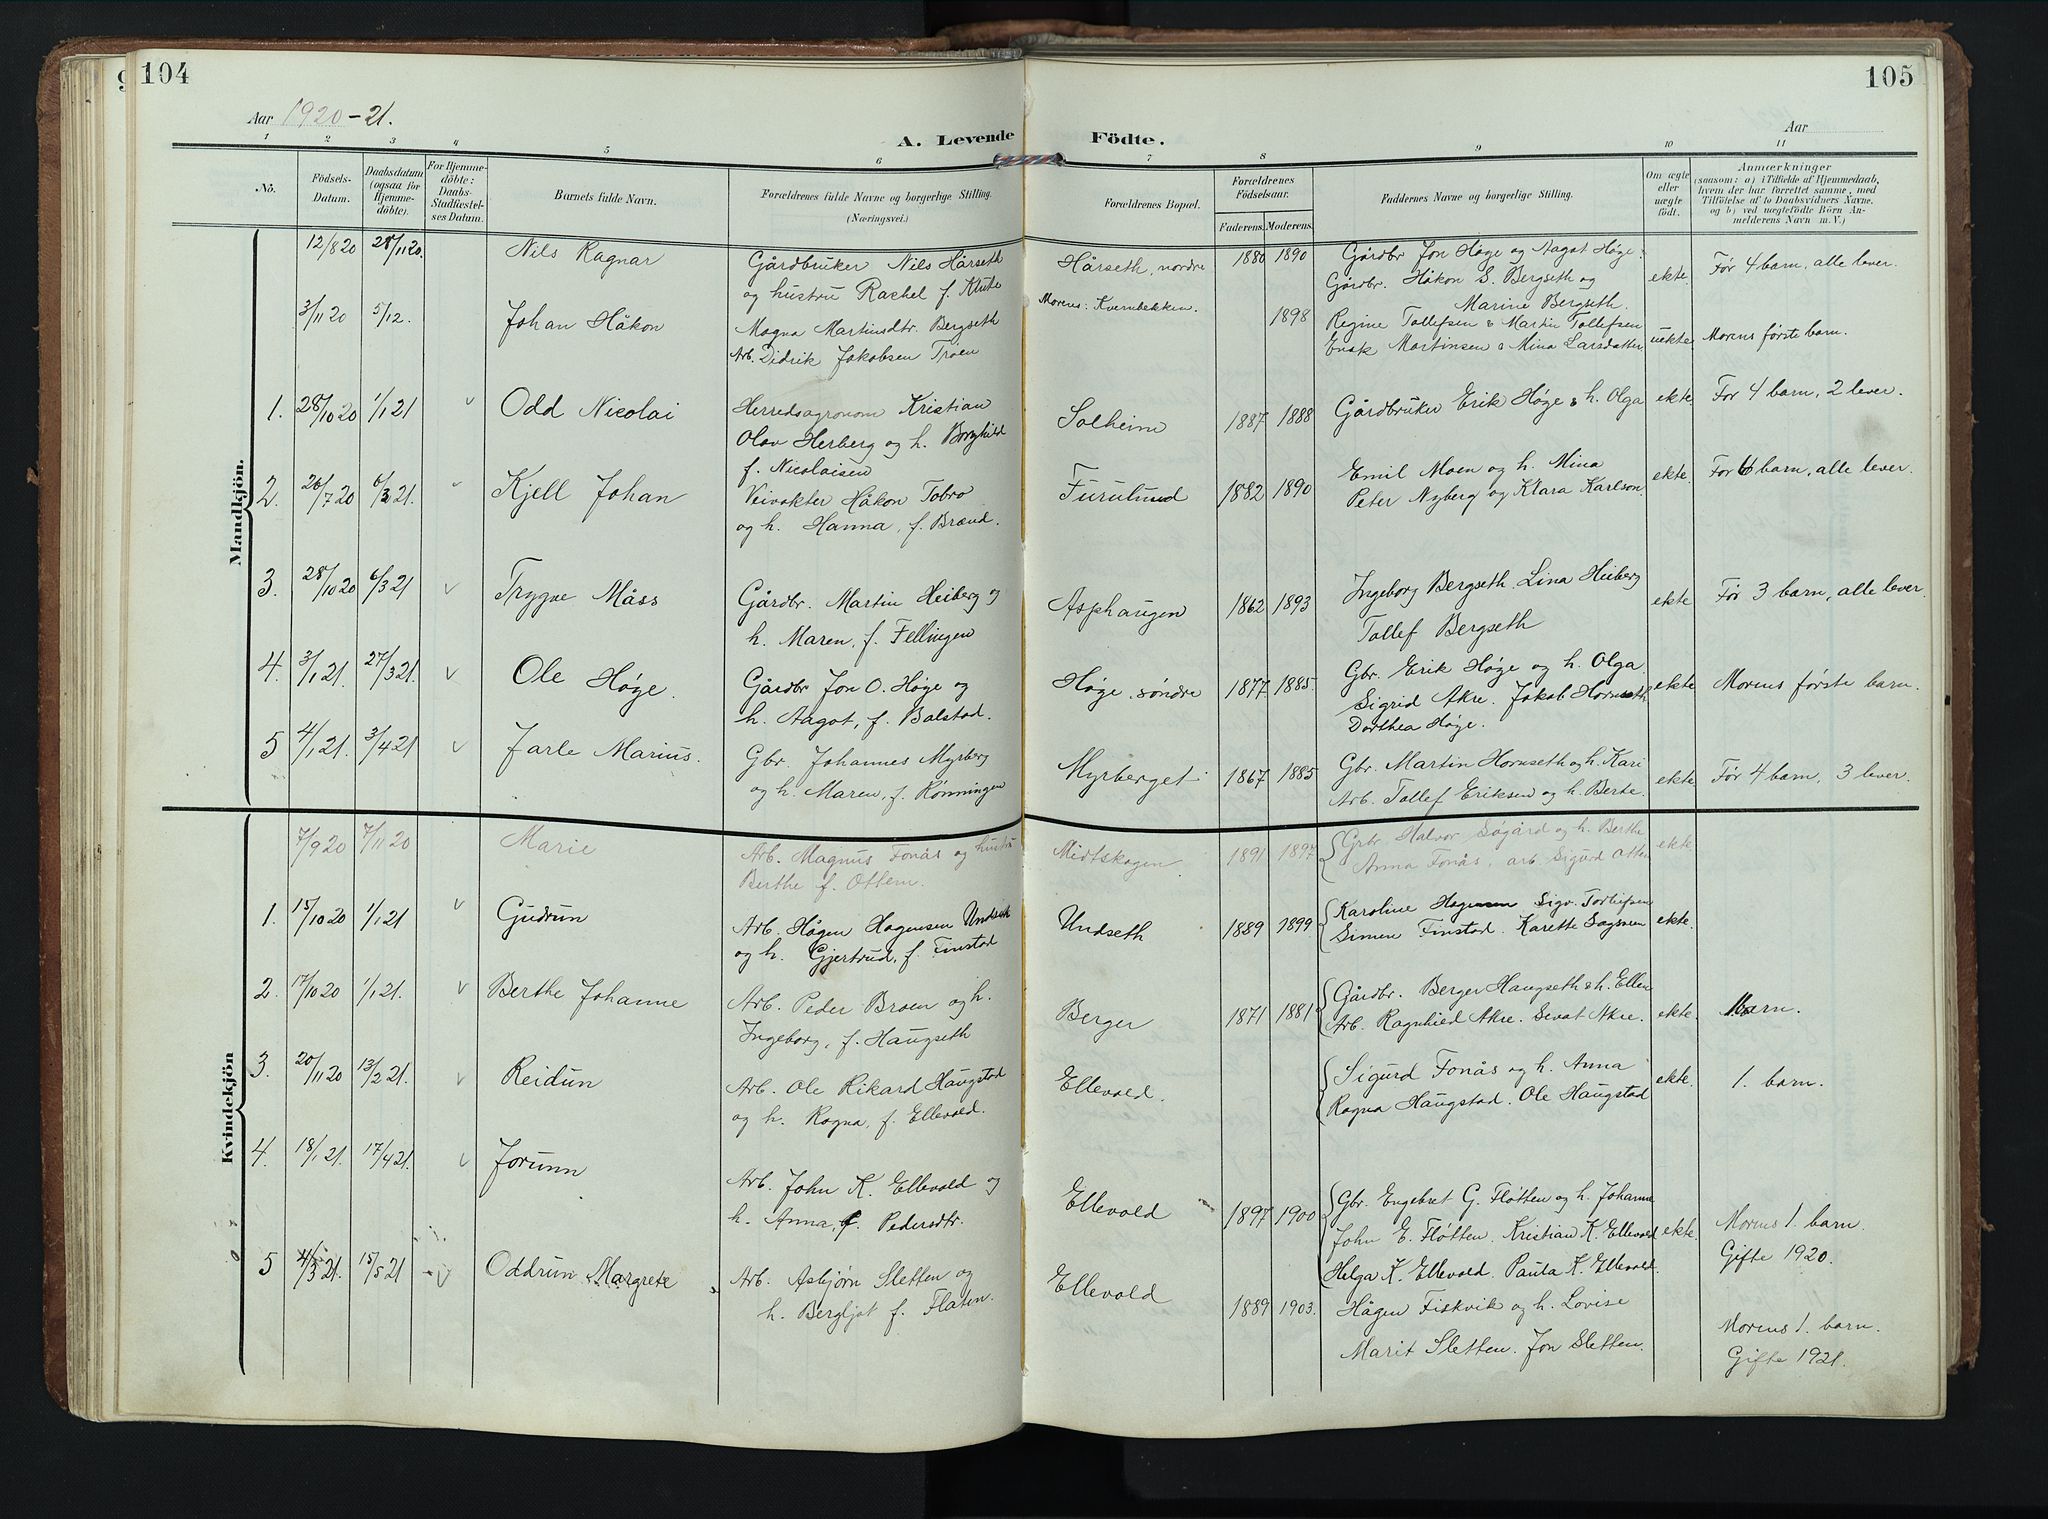 104
105
Aar 1920-21.
Aar
A. Levende Födte.
1 2 3 4 5 6 7 8 9 10 11
Nò.
Födsels-Datum.
Daabsdatum (ogsaa for Hjemme-döbte).
For Hjemme-döbte: Daabs-Stadfæstel-ses Datum.
Barnets fulde Navn.
Forældrenes fulde Navne og borgerlige Stilling.
(Næringsvei.)
Forældrenes Bopæl.
Forældrenes Födselsaar.
Faderens. Moderens.
Faddernes Navne og borgerlige Stilling.
Om ægte eller uægte født.
Anmærkninger
(saasom: a) i Tilfælde af Hjemmedaab,
hvem der har forrettet samme, med
Tilföielse af to Daabsvidners Navne.
og b) ved uægtefödte Börn An-
melderens Navn m. V.)
Mandkjön.
12/8 20 28/11 20. Nils Ragnar Gårdbruker Nils Hårseth
og hustru Rachel f. Klute
Hårseth, nordre 1880 1890 Gårdbr Jon Høge og Aagot Høge.
Gårdbr. Håkon S. Bergseth og
Marine Bergseth.
ekte. Før 4 barn, alle lever.
3/11 20 5/12. Johan Håkon Magna Martinsdtr. Bergseth
Arb. Didrik Jakobsen Trøen
Morens: Kvernbekken. 1898 Regine Tollefsen & Martin Tollefsen
Enok Martinsen & Mina Larsdatter
uekte Morens første barn.
1. 28/10 20 1/1 21 v Odd Nicolai Herredsagronom Kristian
Olav Herberg og h. Borghild
f. Nicolaisen
Solheim 1887 1888 Gårdbruker Erik Høge & h. Olga ekte. Før 4 barn, 2 lever.
2. 26/7 20 6/3 21. Kjell Johan Veivokter Håkon Tobro
og h. Hanna, f. Brænd.
Furulund 1882 1890 Emil Moen og h. Mina
Peter Nyberg og Klara Karlson
ekte. Før 6 barn, alle lever.
3. 28/10 20 6/3 21 v Trygve Måss Gårdbr. Martin Heiberg og
h. Maren, f. Fellingen
Asphaugen 1862 1893 Ingeborg Bergseth. Lina Heiberg
Tollef Bergseth
ekte Før 3 barn, alle lever.
4. 3/1 21. 27/3 21. v Ole Høge. Gårdbr Jon O. Høge og
h. Aagot, f. Balstad.
Høge søndre 1877 1885. Gbr. Erik Høge og h. Olga
Sigrid Akre. Jakob Hornseth
Dorthea Høge.
ekte Morens første barn.
5 4/1 21. 3/4 21 v Jarle Marius. Gbr. Johannes Myrberg
og h. Maren, f. Rønningen
Myrberget 1867 1885 Gbr. Martin Hornseth og h. Kari
Arb. Tollef Eriksen og h. Berte.
ekte Før 4 barn, 3 lever.
Kvindekjön
7/9 20 7/11 20 Marie Arb. Magnus Fonås og hustru
Berthe f. Ottern.
Midtskogen 1891 1897 Grbr Halvor Søgård og h. Berthe
Anna Fonås, arb. Sigurd Otten
ekte
1. 15/10 20 1/1 21 v Gudrun Arb. Hågen Hagensen Undseth
og h. Gjertrud, f. Finstad
Undseth 1889 1899 Karoline Hagensen Sigv. Torleifsen
Simen Finstad. Karette Sagmoen
ekte.
2. 17/10 20 1/1 21. v Berthe Johanne Arb. Peder Broen og h.
Ingeborg, f. Haugseth
Berger 1871 1881 Gårdbr. Berger Haugseth & h. Ellen
Arb. Ragnhild Akre. Sevat Akre.
ekte. barn.
3. 20/11 20 13/2 21. v Reidun Arb. Ole Rikard Haugstad
og h. Ragna, f. Ellevold.
Ellevold. Sigurd Fonås og h. Anna
Ragna Haugstad. Ole Haugstad
ekte. 1. barn.
4. 18/1 21. 17/4 21. v Jorunn Arb. John K. Ellevold og
h. Anna, f. Pedersdtr.
Ellevold 1897 1900 Gbr. Engebret G. Fløtten og h. Johanne
John E. Fløtten. Kristian K. Ellevold
Helga K. Ellevold. Paula K. Ellevold.
ekte. Morens 1. barn.
Gifte 1920.
5 4/3 21. 15/5 21 v Oddrun Margrete Arb. Asbjørn Sletten og
h. Bergljot f. Flaten.
Ellevold 1889 1903. Hågen Fiskvik og h. Lovise
Marit Sletten. Jon Sletten.
Morens 1. barn.
Gifte 1921.